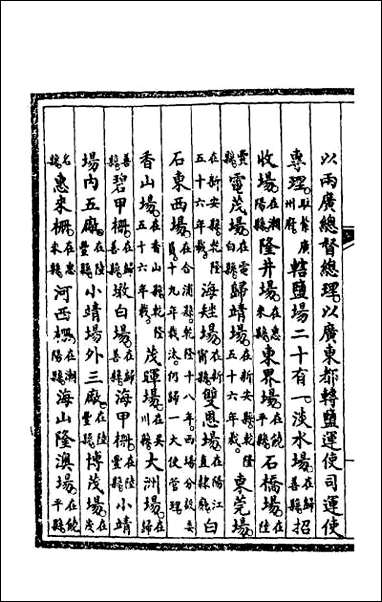 以兩廣總督總理以廣東都轉鹽運使司運使
專理駐劄廣州府轄鹽場二十有一淡水場在歸善縣招
收場在潮陽縣隆井場在惠來縣東界場在饒平縣石橋場在陸
豐縣電茂場在電白縣歸靖場在新安縣乾隆五十六年裁東莞場
在新安縣乾隆五十六年裁海矬場在新寧縣雙恩場在陽江直隸廳白
石東西場在合浦縣乾隆十八年西場分設委員十九年裁汰仍歸一大使管理
香山場在香山縣乾隆五十六年裁茂暉場在吳川縣大洲場在歸
善縣碧甲柵在歸善縣墩白場在歸善縣海甲柵在陸豐縣小靖
場內五廠在陸豐縣小靖場外三廠在陸豐縣博茂場在茂
名縣惠來柵在惠來縣河西柵在潮陽縣海山隆澳場在饒平縣